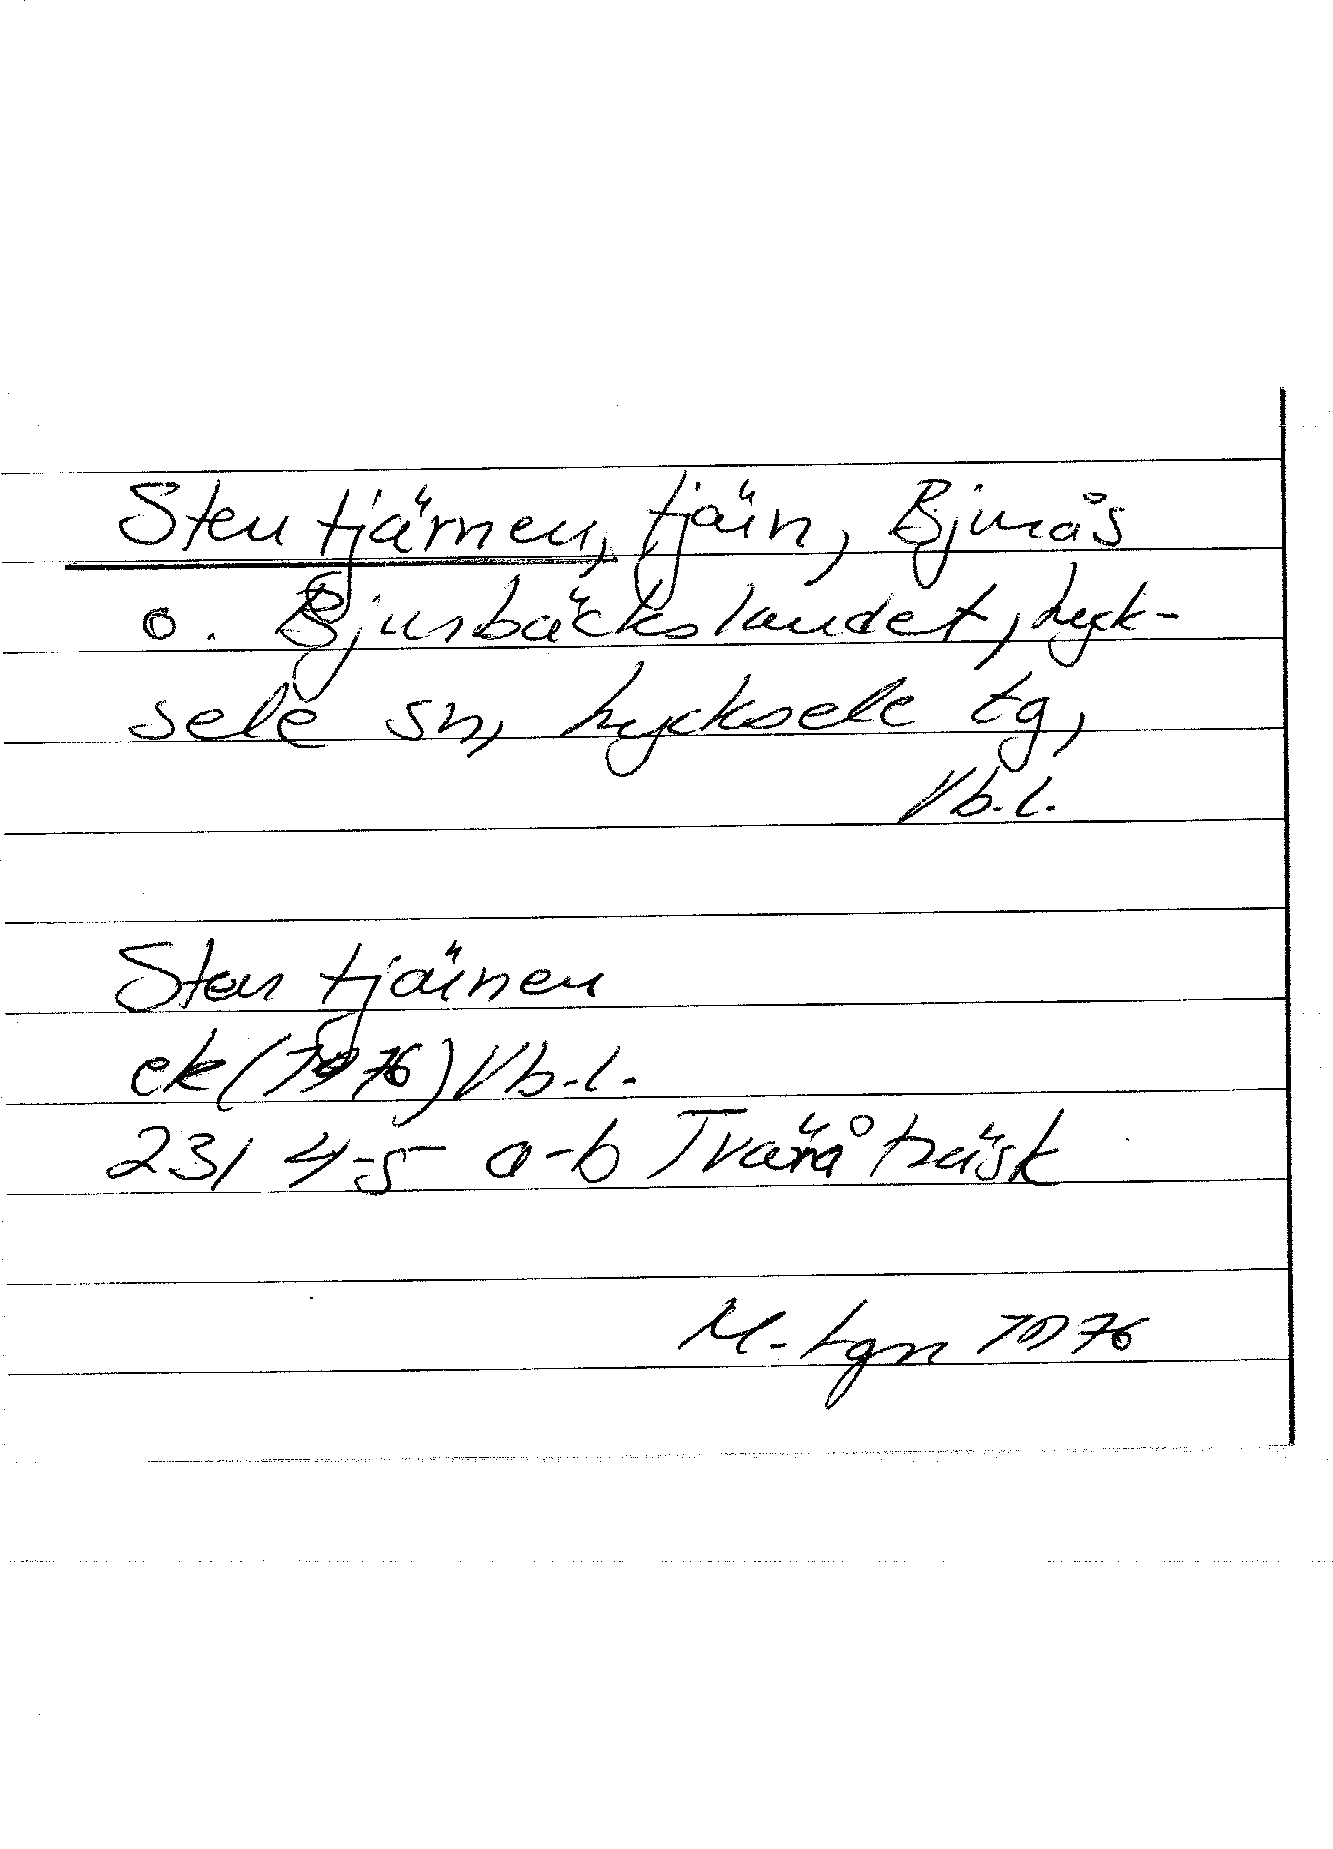 Stentjärnen, tjärn, Bjurås
o. Bjursbäckslandet, Lyck-
sele sn, Lycksele tg,
Vb.l.
Stentjärnen
ek (1976) Vb.l.
23I 4-5 a-b Tväråträsk
M. Lgn 1976